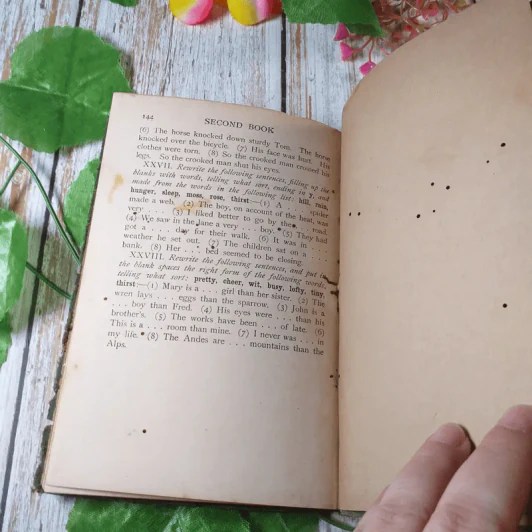 144 SECOND BOOK
(6) The horse knocked down sturdy Tom. The horse
knocked over the bicycle. (7) His face was hurt. His
clothes were torn. (8) So the crooked man crossed his
legs. So the crooked man shut his eyes.
XXVII. Rewrite the following sentences, filling up the
blanks with words, telling what sort, ending in y, and
made from the words in the following list: hill, rain,
hunger, sleep, moss, rose, thirst:—(1) A . . . spider
made a web. (2) The boy, on account of the heat, was
very . . . (3) I liked better to go by the . . . road.
(4) We saw in the lane a very . . . boy. (5) They had
got a . . . day for their walk. (6) It was in . . .
weather he set out. (7) The children sat on a . . .
bank. (8) Her . . . bed seemed to be closing.
XXVIII. Rewrite the following sentences, and put in
the blank spaces the right form of the following words,
telling what sort: pretty, cheer, wit, busy, lofty, tiny,
thirst:—(1) Mary is a . . . girl than her sister. (2) The
wren lays . . . eggs than the sparrow. (3) John is a
. . . boy than Fred. (4) His eyes were . . . than his
brother's. (5) The works have been . . . of late. (6)
This is a . . . room than mine. (7) I never was . . . in
my life. (8) The Andes are . . . mountains than the
Alps.